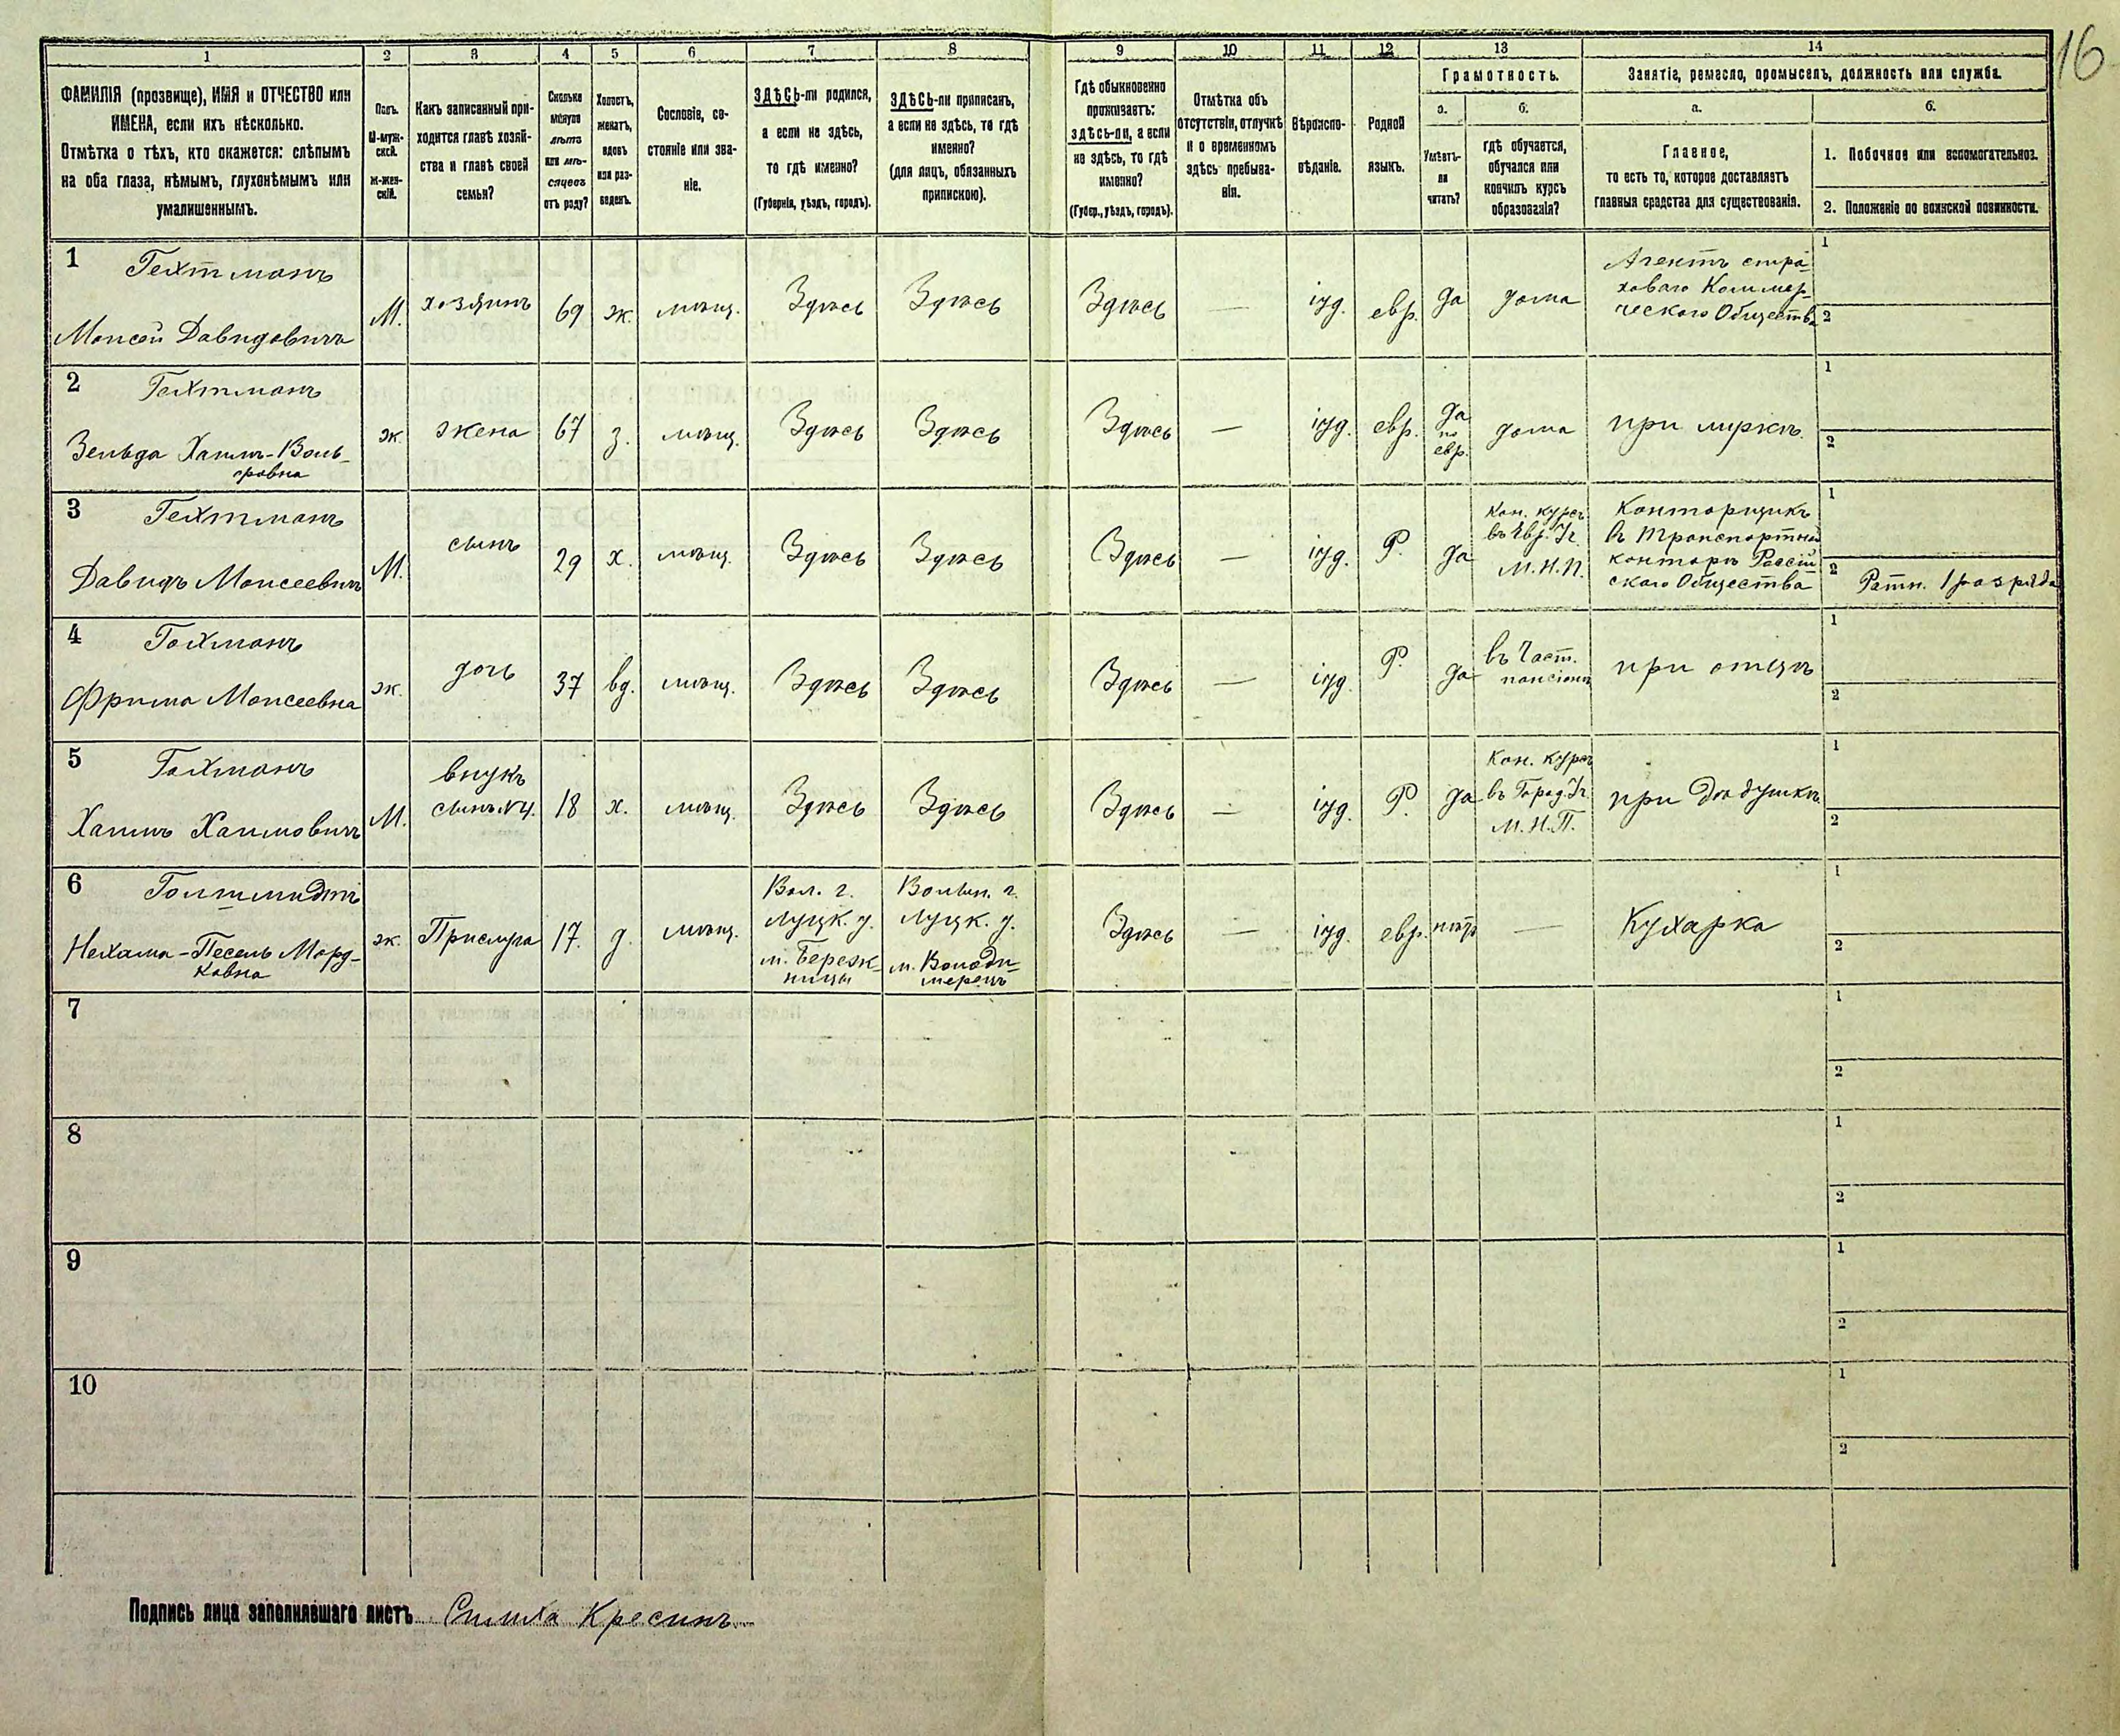 16
1
2
3
4
5
6
7
8
9
10
11
12
13
14
ФАМИЛІЯ (прозвище), ИМЯ и ОТЧЕСТВО или
ИМЕНА, если ихъ нѣсколько.
Отмѣтка о тѣхъ, кто окажется: слѣпымъ
на оба глаза, нѣмымъ, глухонѣмымъ или
умалишеннымъ.
Полъ.
М-муж-
ской.
Ж-жен-
скій.
Какъ записанный при-
ходится главѣ хозяй-
ства и главѣ своей
семьи?
Сколько
минуло
лѣтъ
или мѣ-
сяцевъ
отъ роду?
Холостъ,
женатъ,
вдовъ
или раз-
веденъ.
Сословіе, со-
стояніе или зва-
ніе.
ЗДѢСЬ-ли родился,
а если не здѣсь,
то гдѣ именно?
(Губернія, уѣздъ, городъ).
ЗДѢСЬ-ли приписанъ,
а если не здѣсь, то гдѣ
именно?
(для лицъ, обязанныхъ
припискою).
Гдѣ обыкновенно
проживаетъ:
здѣсь-ли, а если
не здѣсь, то гдѣ
именно?
(Губер., уѣздъ, городъ).
Отмѣтка объ
отсутствіи, отлучкѣ
и о временномъ
здѣсь пребыва-
ніи.
Вѣроиспо-
вѣданіе.
Родной
языкъ.
Грамотность.
а.
б.
Умѣетъ-
ли
читать?
гдѣ обучается,
обучался или
кончилъ курсъ
образованія?
Занятіе, ремесло, промыселъ, должность или служба.
а.
б.
Главное,
то есть то, которое доставляетъ
главныя средства для существованія.
1. Побочное или вспомогательное.
2. Положеніе по воинской повинности.
1
Гехтманъ
Моисей Давидовичъ
М.
хозяинъ
69
ж.
мѣщ.
Здѣсь
Здѣсь
Здѣсь
—
іуд.
евр.
да
дома
Агентъ стра-
ховаго Коммер-
ческаго Общества
1
2
2
Гехтманъ
Зельда Хаимъ-Воль-
фовна
ж.
жена
67
з.
мѣщ.
Здѣсь
Здѣсь
Здѣсь
—
іуд.
евр.
да
по
евр.
дома
при мужѣ.
1
2
3
Гехтманъ
Давидъ Моисеевичъ
М.
сынъ
29
х.
мѣщ.
Здѣсь
Здѣсь
Здѣсь
—
іуд.
Р.
да
Кон. курсъ
въ Евр. Уч.
М.Н.П.
Конторщикъ
въ Транспортной
конторѣ Россій
скаго Общества
1
2
Ратн. 1 разряда
4
Гохманъ
Фрима Моисеевна
ж.
дочь
37
вд.
мѣщ.
Здѣсь
Здѣсь
Здѣсь
—
іуд.
Р.
да
въ Част.
пансіонѣ
при отцѣ
1
2
5
Гохманъ
Хаимъ Хаимовичъ
М.
внукъ
сынъ №4.
18
х.
мѣщ.
Здѣсь
Здѣсь
Здѣсь
—
іуд.
Р.
да
Кон. курсъ
въ Город. Уч.
М.Н.П.
при дѣдушкѣ
1
2
6
Голтмидтъ
Нехама-Песель Морд-
ковна
ж.
Прислуга
17.
д.
мѣщ.
Вол. г.
Луцк. у.
м. Береж-
ницы
Волын. г.
Луцк. у.
м. Володи-
мерецъ
Здѣсь
—
іуд.
евр.
нѣтъ
—
Кухарка
1
2
7
1
2
8
1
2
9
1
2
10
1
2
Подпись лица заполнявшаго листъ Симха Кресинъ